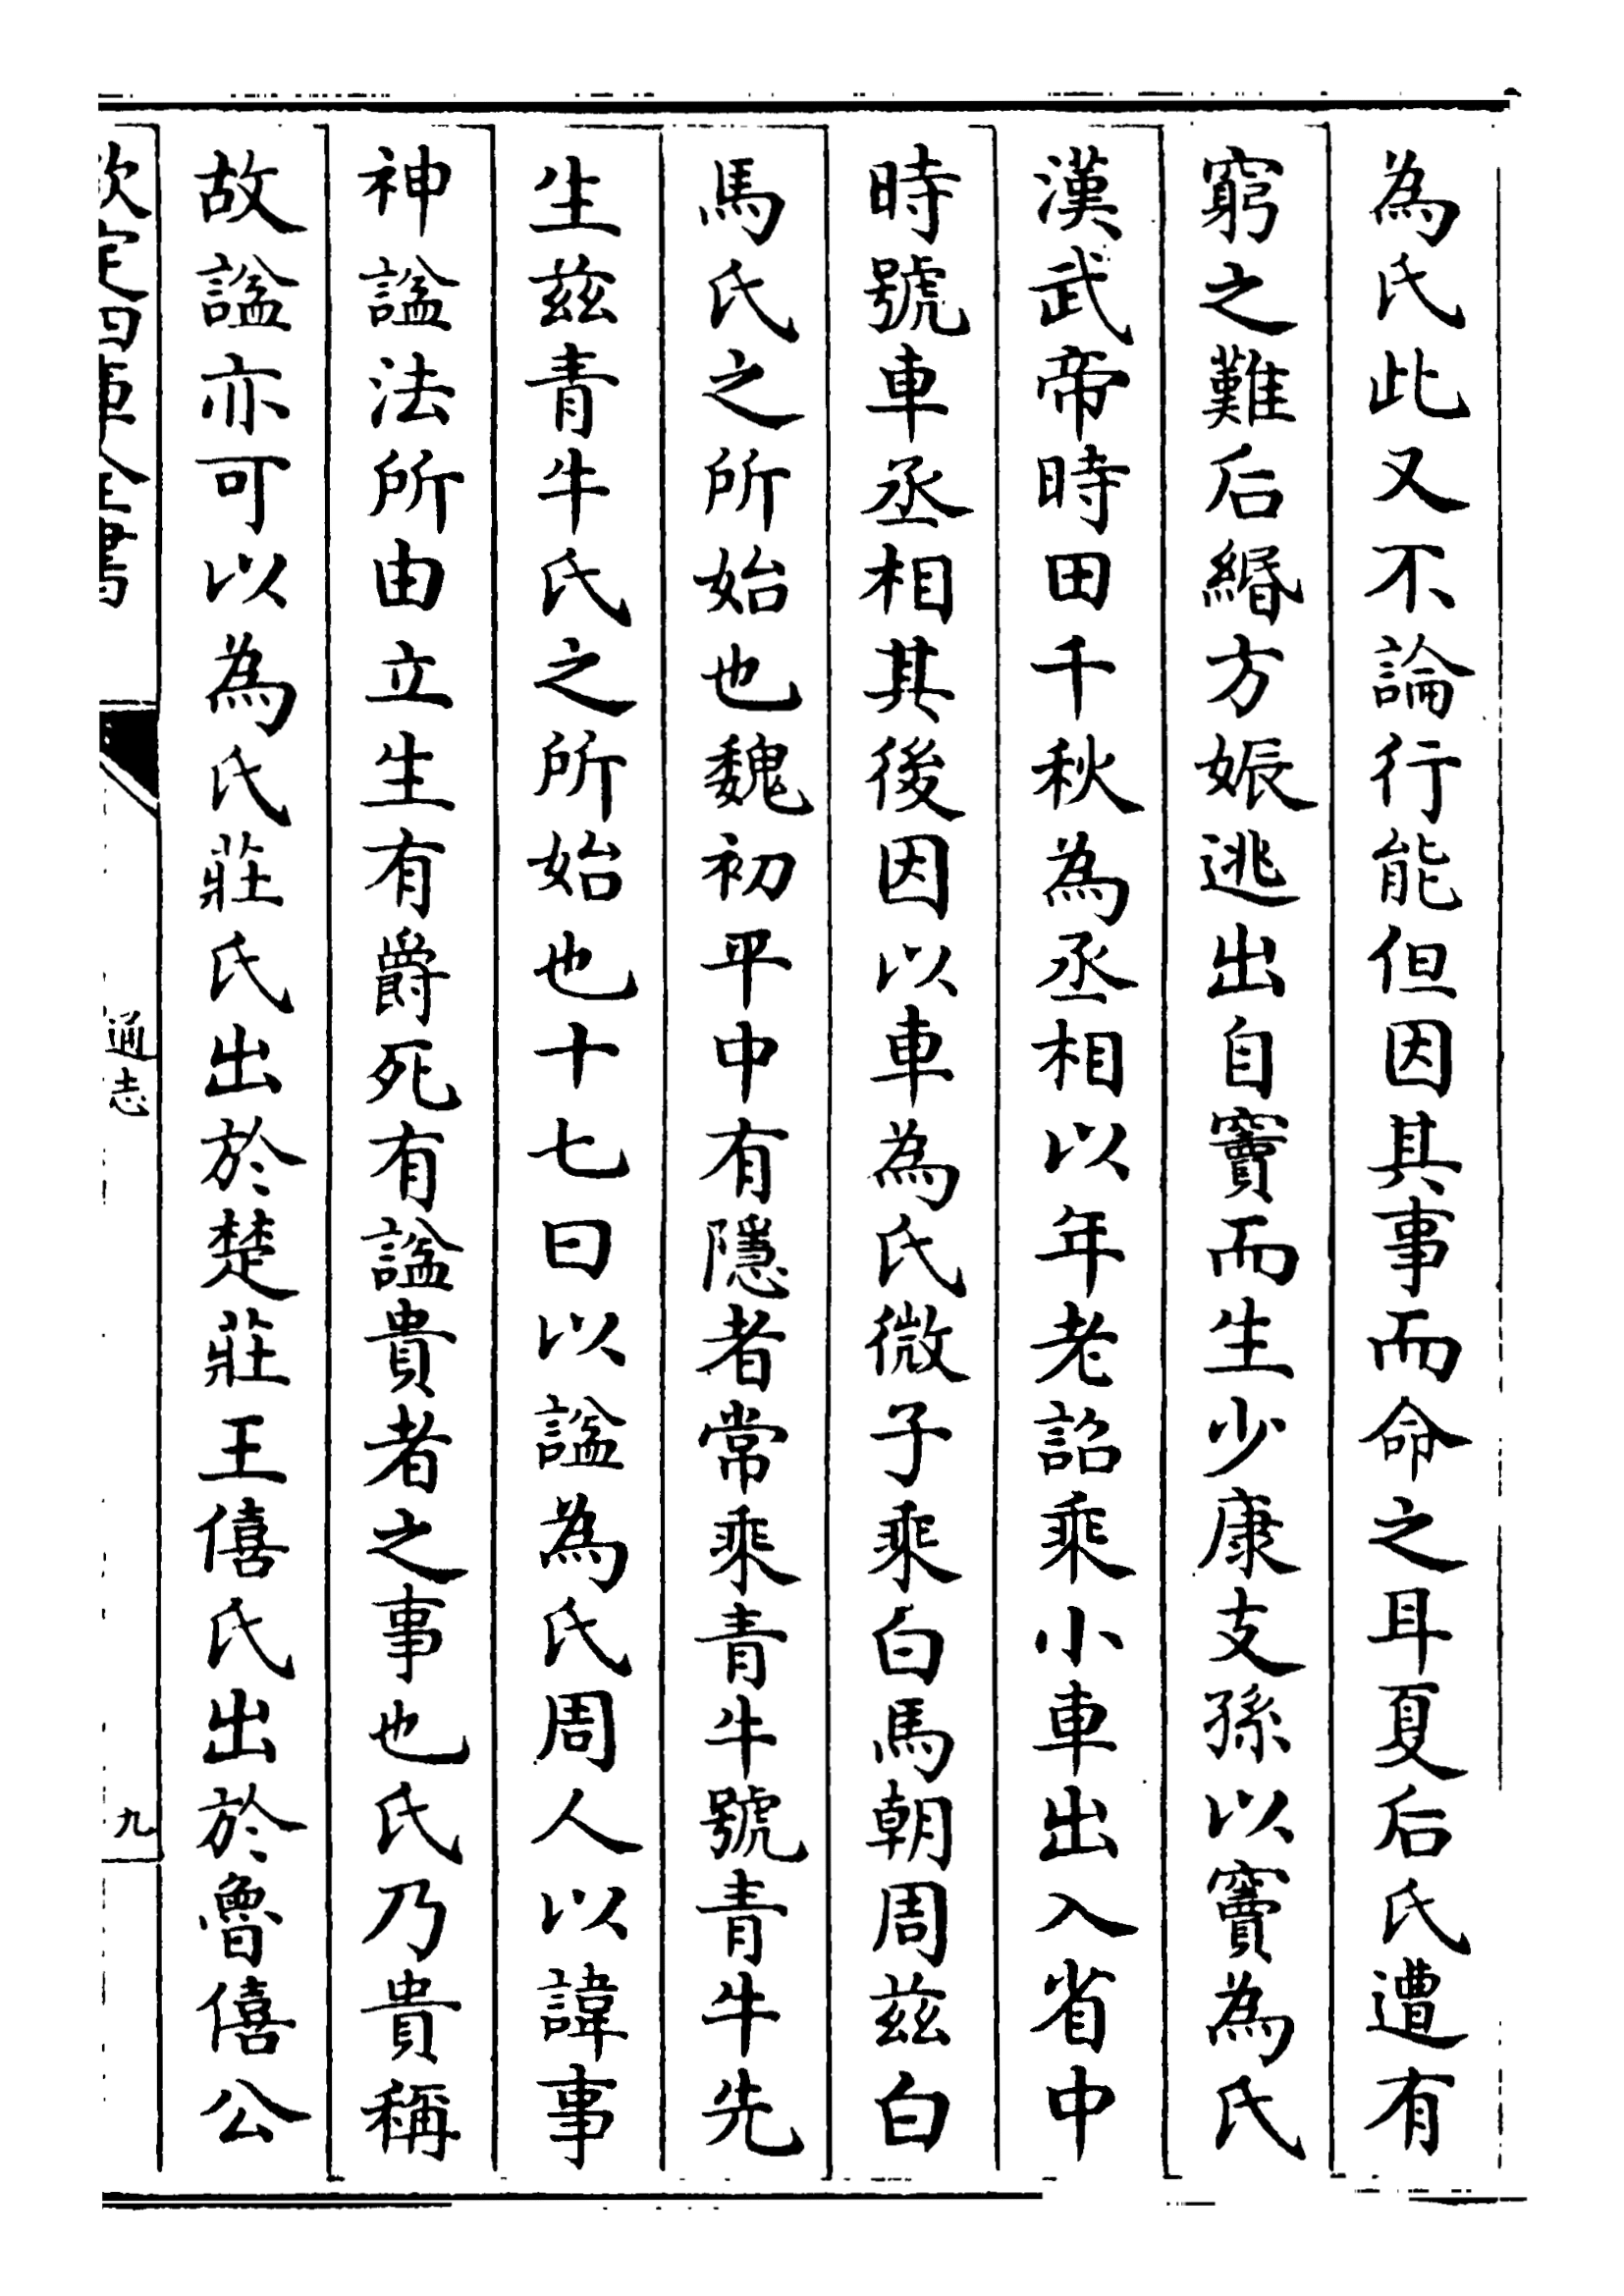 為氏此又不論行能但因其事而命之耳夏后氏遭有
窮之難后緡方娠逃出自竇而生少康支孫以竇為氏
漢武帝時田千秋為丞相以年老詔乘小車出入省中
時號車丞相其後因以車為氏微子乘白馬朝周茲白
馬氏之所始也魏初平中有隱者常乘青牛號青牛先
生茲青牛氏之所始也十七曰以諡為氏周人以諱事
神諡法所由立生有爵死有諡貴者之事也氏乃貴稱
故諡亦可以為氏莊氏出於楚莊王僖氏出於魯僖公
欽定四庫全書
通志
九